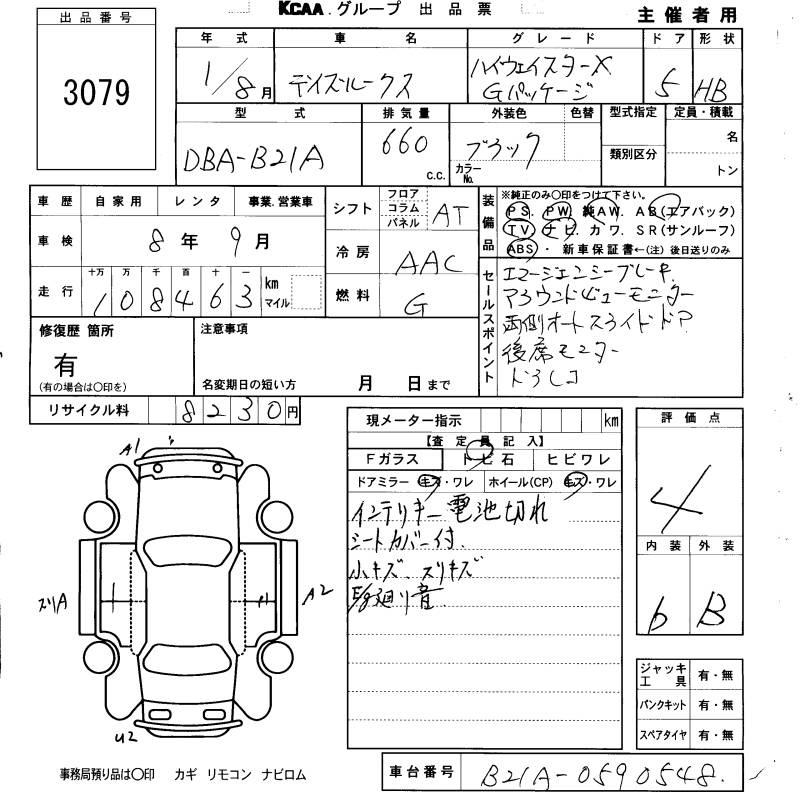 KCAA.グループ 出品票
主催者用
出品番号
3079
年式 車名 グレード ドア 形状
1/8月 デイズルークス ハイウェイスターX Gパッケージ 5 HB
型式 排気量 外装色 色替 型式指定 定員・積載
類別区分
DBA-B21A 660 c.c. ブラック カラーNo. 名
トン
車歴 自家用 レンタ 事業.営業車
車検 8年9月
走行 十万 万 千 百 十 一
108463 km マイル
シフト フロア コラム パネル AT
冷房 AAC
燃料 G
装備品 ※純正のみ〇印をつけて下さい。
PS. PW. 純AW. AB(エアバック)
TV ナビ. カワ. SR(サンルーフ)
ABS・ 新車保証書←(注) 後日送りのみ
セールスポイント
エマージェンシーブレーキ
アラウンドビューモニター
両側オートスライドドア
後席モニター
ドラレコ
修復歴 箇所
有
(有の場合は〇印を)
注意事項
名変期日の短い方 月 日まで
リサイクル料 8230円
現メーター指示 km
【査定員記入】
Fガラス トビ石 ヒビワレ
ドアミラー キズ・ワレ ホイール(CP) キズ・ワレ
インテリキー電池切れ
シートカバー付.
小キズ. スリキズ
E/g廻り音
評価点
4
内装 外装
6 B
A1
スリA
A2
U2
ジャッキ工具 有・無
パンクキット 有・無
スペアタイヤ 有・無
事務局預り品は〇印 カギ リモコン ナビロム
車台番号 B21A-0590548.